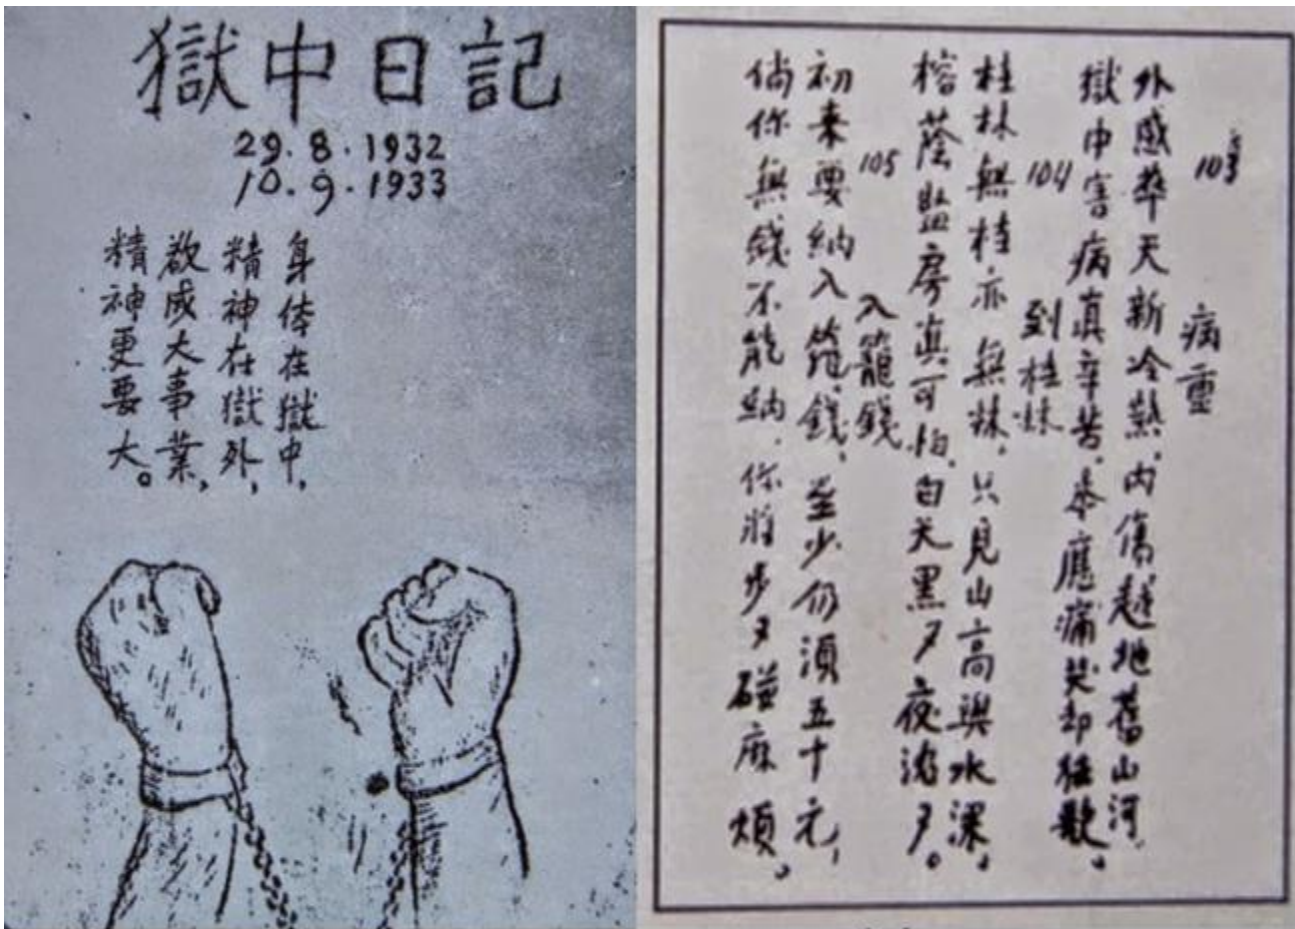 獄中日記
29.8.1932
10.9.1933
身体在獄中,
精神在獄外,
欲成大事業,
精神更要大。
103
病重
外感華天新冷熱,内傷越地舊山河,
獄中害病真辛苦,本應痛哭却狂歌。
104
到桂林
桂林無桂亦無林,只見山高與水深。
榕蔭監房真可怕,白天黑々夜沉々。
105
入籠錢
初来要納入籠錢,至少仍須五十元,
倘你無錢不能納,你將步々碰麻煩。